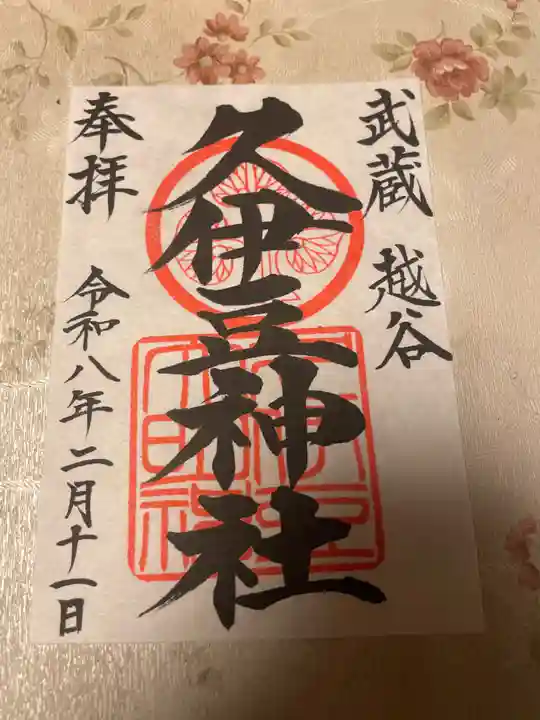 武蔵 越谷
久伊豆神社
奉拝
令和八年二月十一日